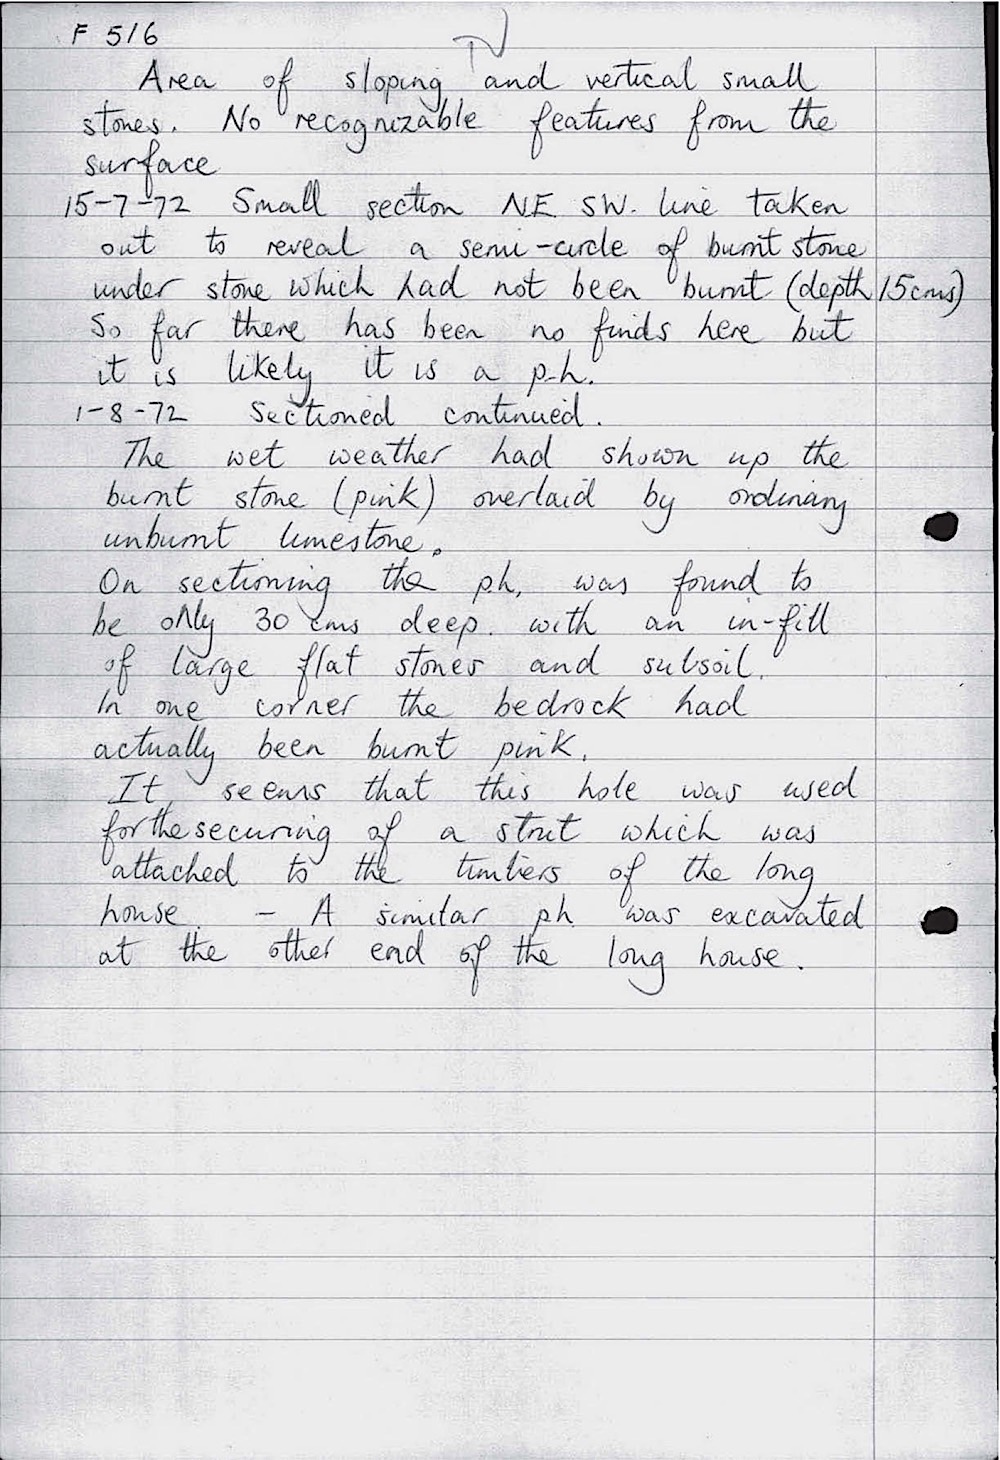 F 516
Area of sloping and vertical small
stones. No recognizable features from the
surface
15-7-72 Small section NE SW. line taken
out to reveal a semi-circle of burnt stone
under stone which had not been burnt (depth 15cms)
So far there has been no finds here but
it is likely it is a p-h.
1-8-72 Sectioned continued.
The wet weather had shown up the
burnt stone (pink) overlaid by ordinary
unburnt limestone.
On sectioning the p.h. was found to
be only 30 cms deep. with an in-fill
of large flat stones and subsoil.
In one corner the bedrock had
actually been burnt pink.
It seems that this hole was used
for the securing of a strut which was
attached to the timbers of the long
house - A similar ph was excavated
at the other end of the long house.